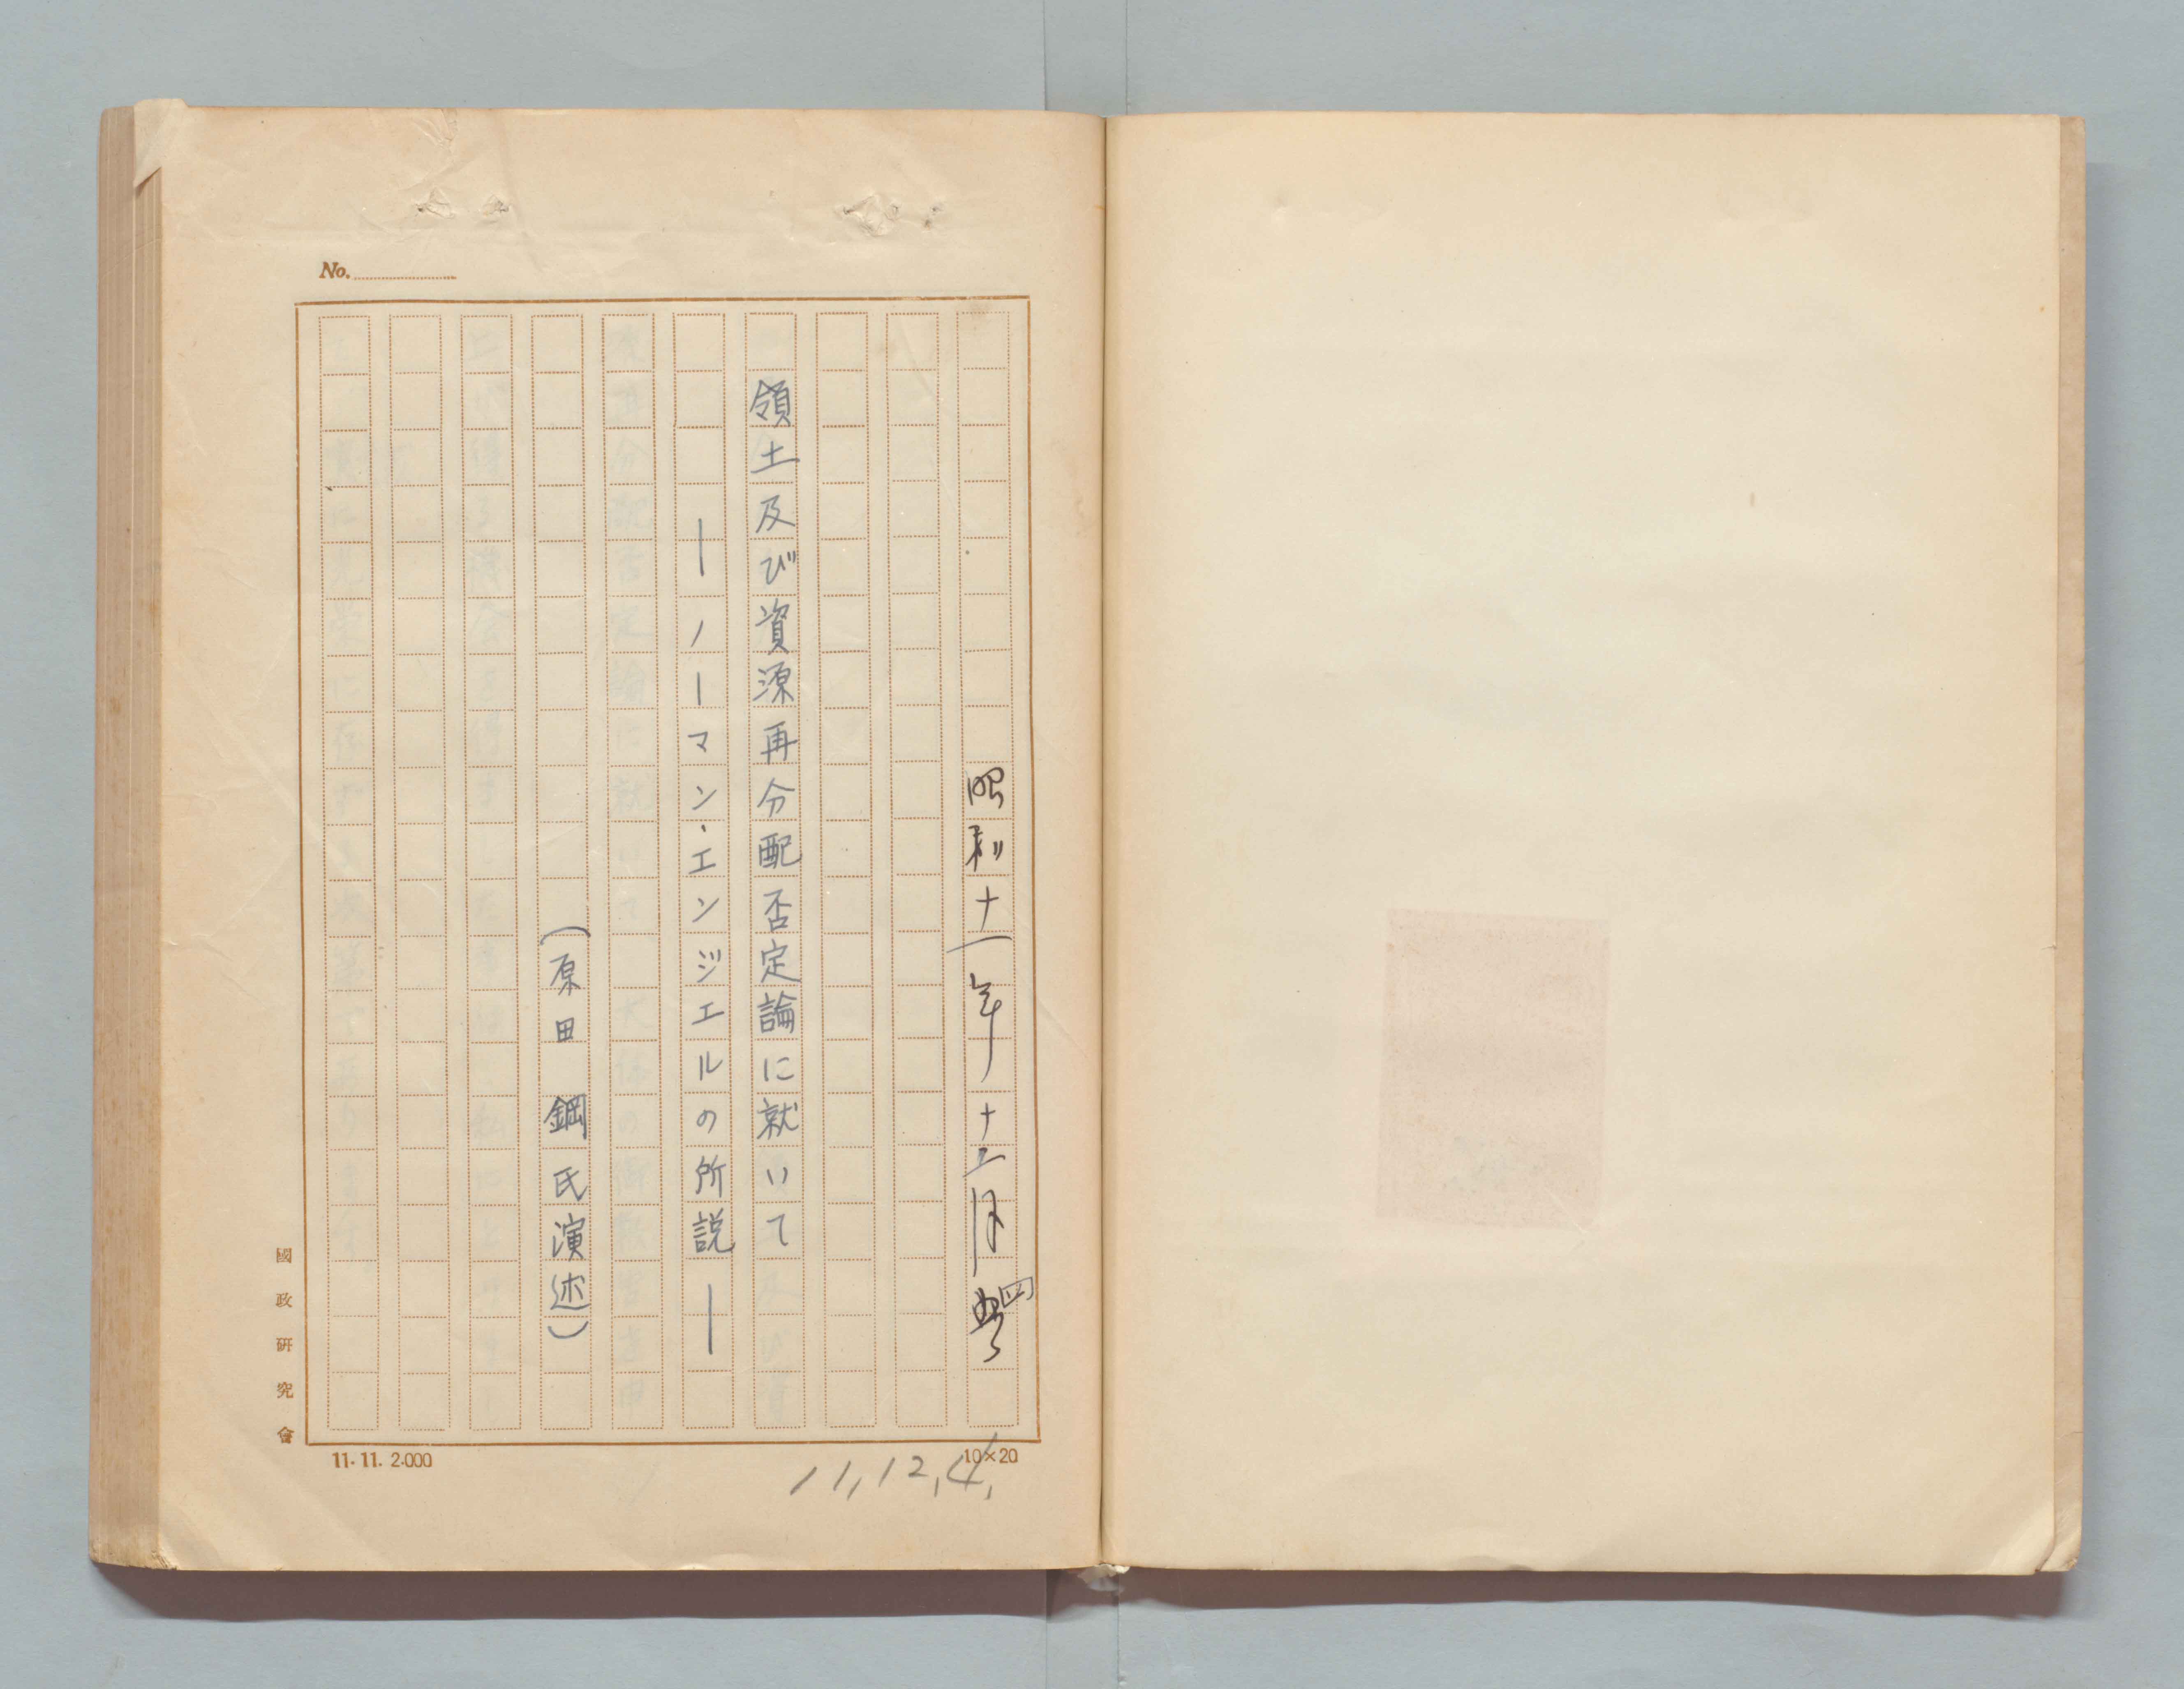 No.
昭和十一年十二月四日
領土及び資源再分配否定論に就いて
―ノーマン・エンジエルの所説―
(原田 鋼氏演述)
國政研究會
11.11.2.000
10×20
11,12,4,